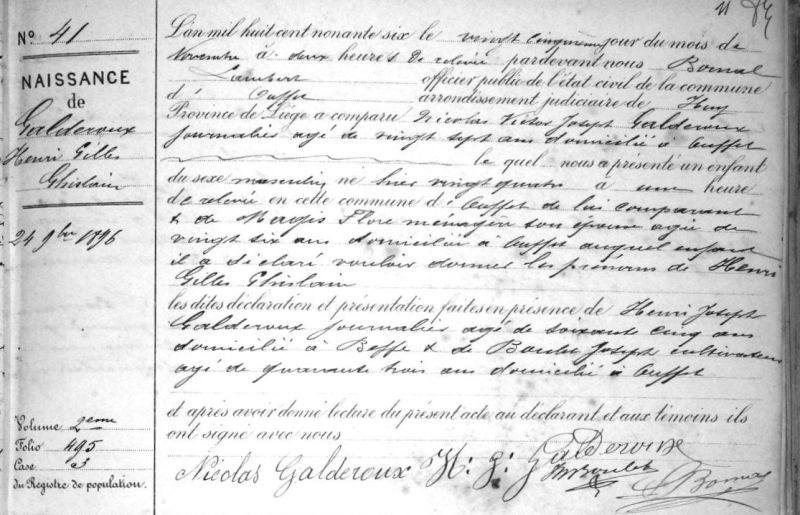 No. 41
NAISSANCE
de
Galderoux
Henri Gilles
Ghislain
24 9bre 1896
Volume 2eme
Folio 495
Case 3
du Registre de population.
L'an mil huit cent nonante six le vingt cinquième jour du mois de
Novembre à deux heures de relevée pardevant nous Bornal
Lambert officier public de l'état civil de la commune
d' Ouffet arrondissement judiciaire de Huy
Province de Liège a comparu Nicolas Victor Joseph Galderoux
journalier agé de vingt sept ans domicilié à Ouffet
le quel nous a présenté un enfant
du sexe masculin né hier vingt quatre à une heure
de relevée en cette commune d' Ouffet de lui comparant
& de Magis Flore ménagère son épouse agée de
vingt six ans domiciliée à Ouffet auquel enfant
il a déclaré vouloir donner les prénoms de Henri
Gilles Ghislain
les dites déclaration et présentation faites en présence de Henri Joseph
Galderoux journalier agé de soixante cinq ans
domicilié à Beffe & de Boulet Joseph cultivateur
agé de quarante trois ans domicilié à Ouffet
et après avoir donné lecture du présent acte au déclarant et aux témoins ils
ont signé avec nous
Nicolas Galderoux H. J. Galderoux
Boulet
Bornal